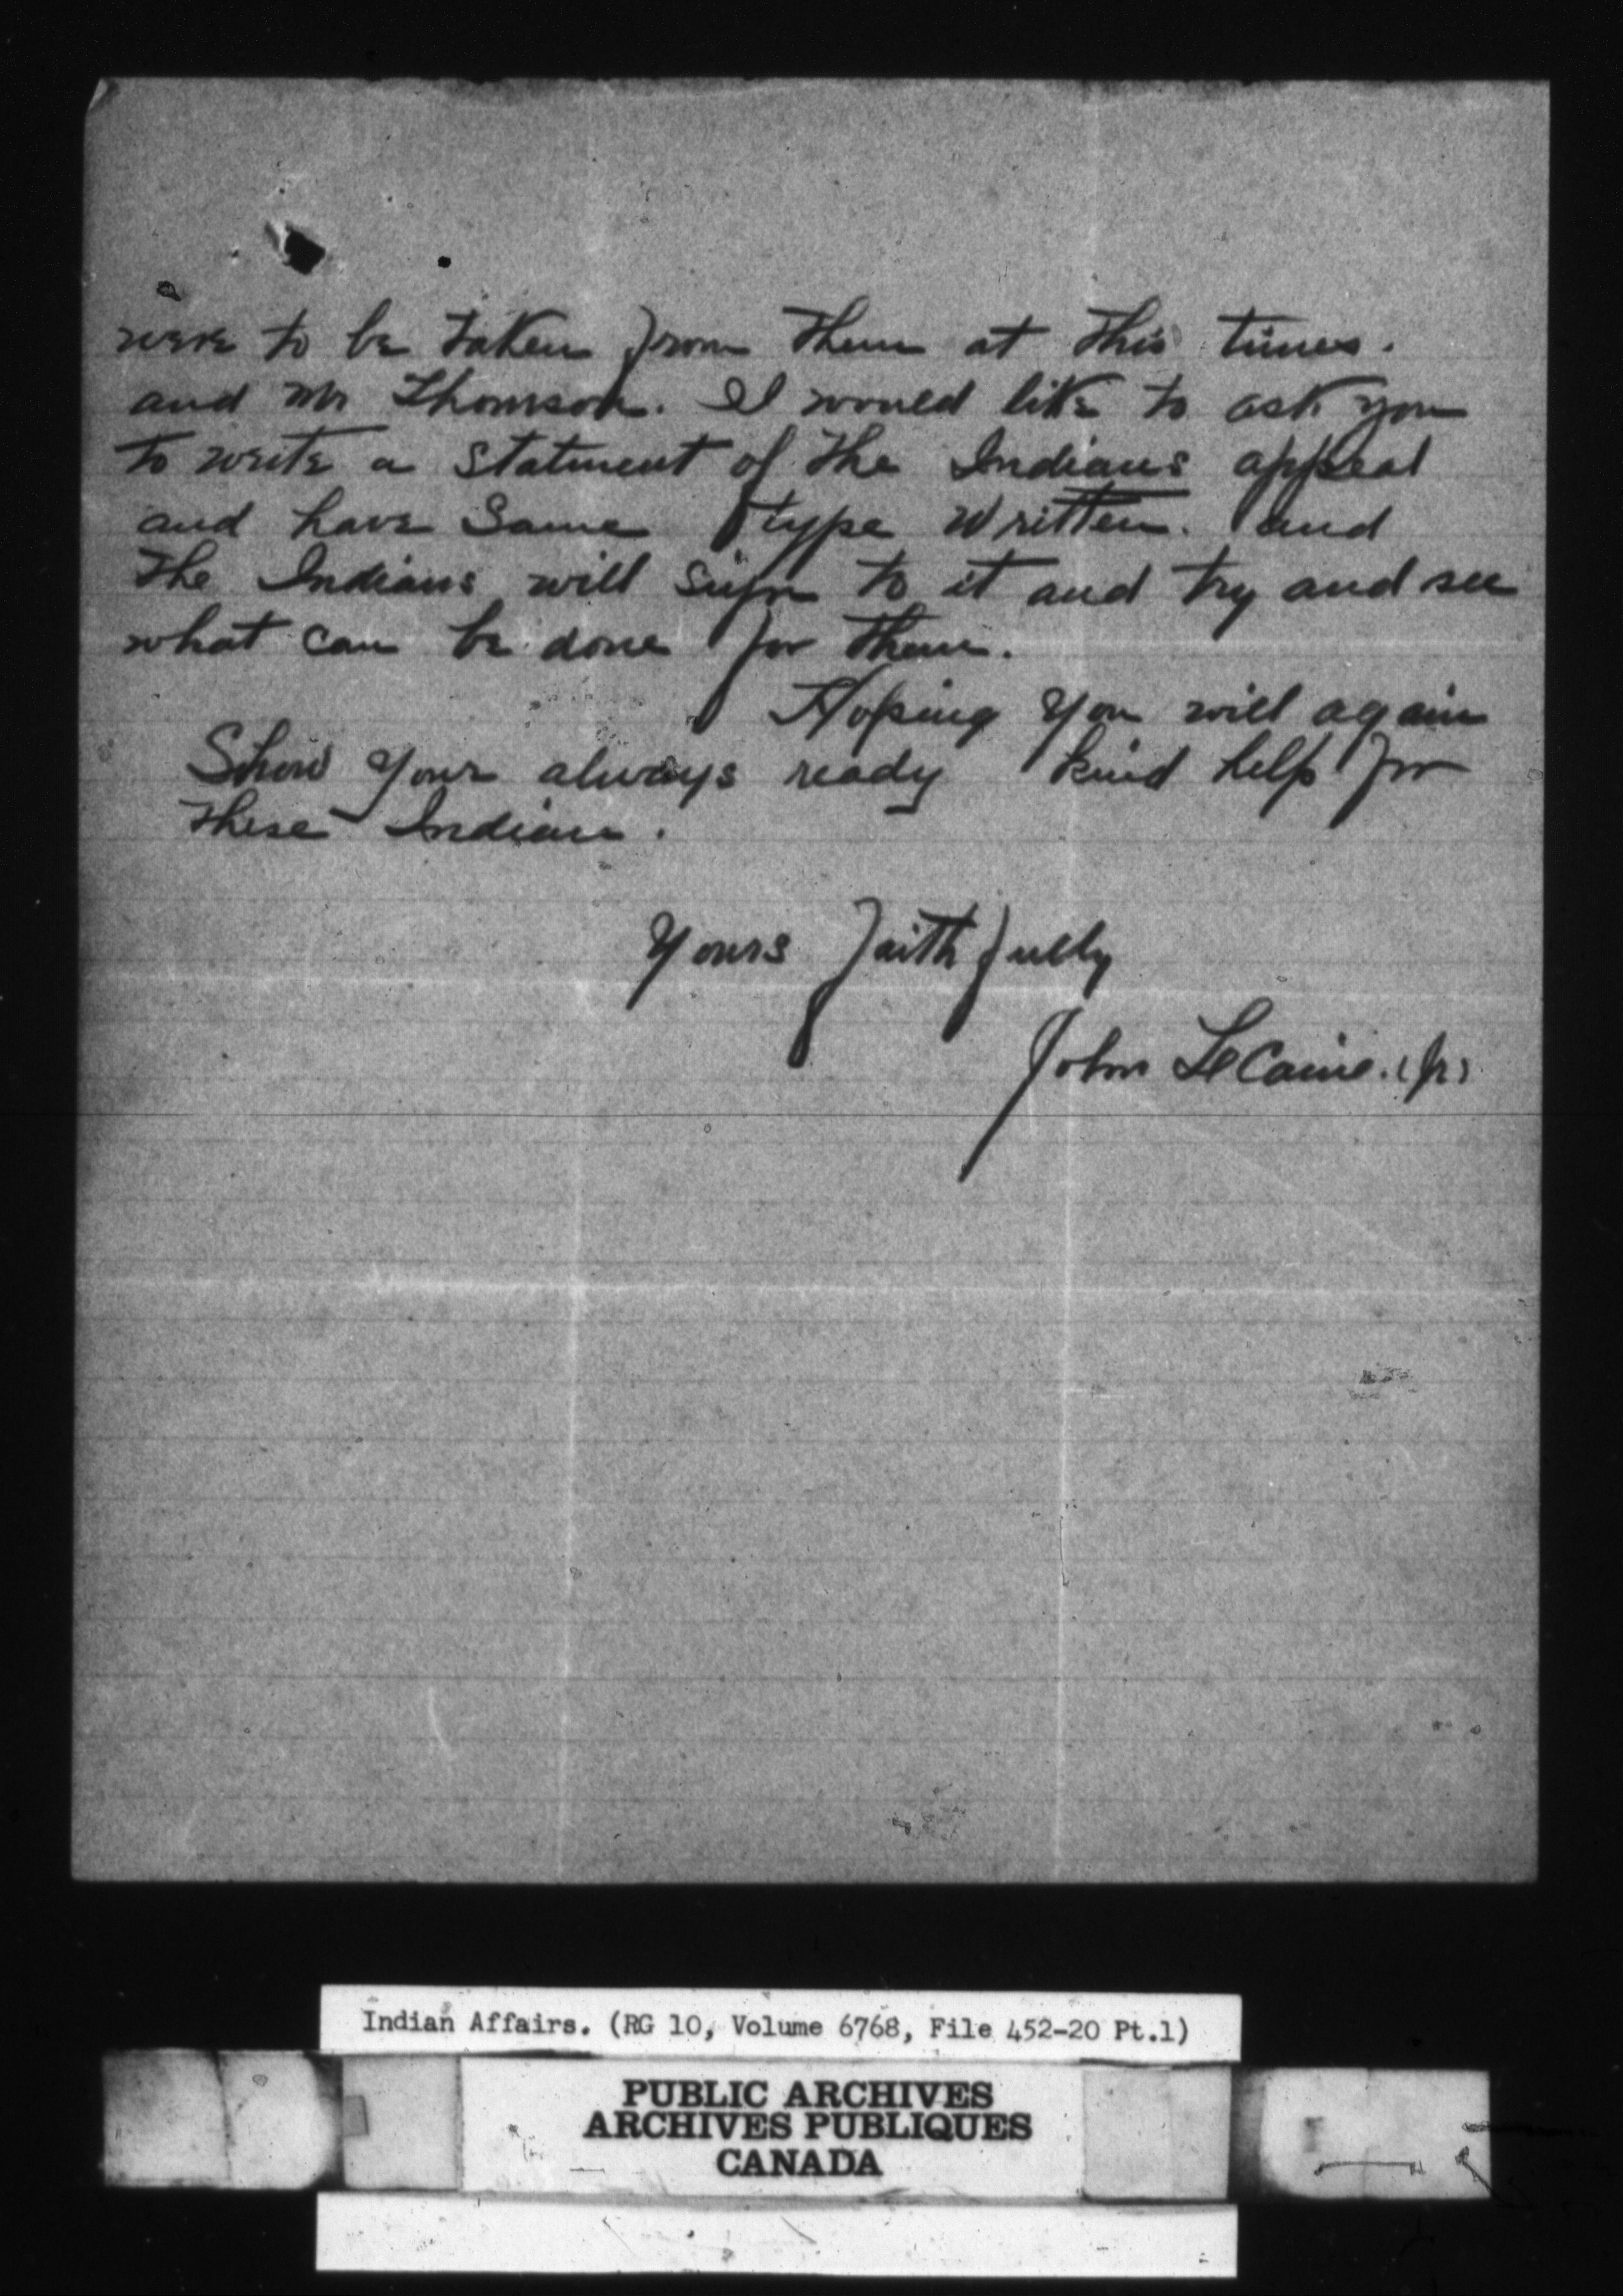 were to be taken from them at this times.
and Mr Thomson. I would like to ask you
to write a statment of the Indians appeal
and have same type written. and
the Indians will sign to it and try and see
what can be done for them.
Hoping you will again
Show your always ready kind help for
these Indian.
Yours faithfully
John LeCaine. (Jr)
Indian Affairs. (RG 10, Volume 6768, File 452-20 Pt.1)
PUBLIC ARCHIVES
ARCHIVES PUBLIQUES
CANADA